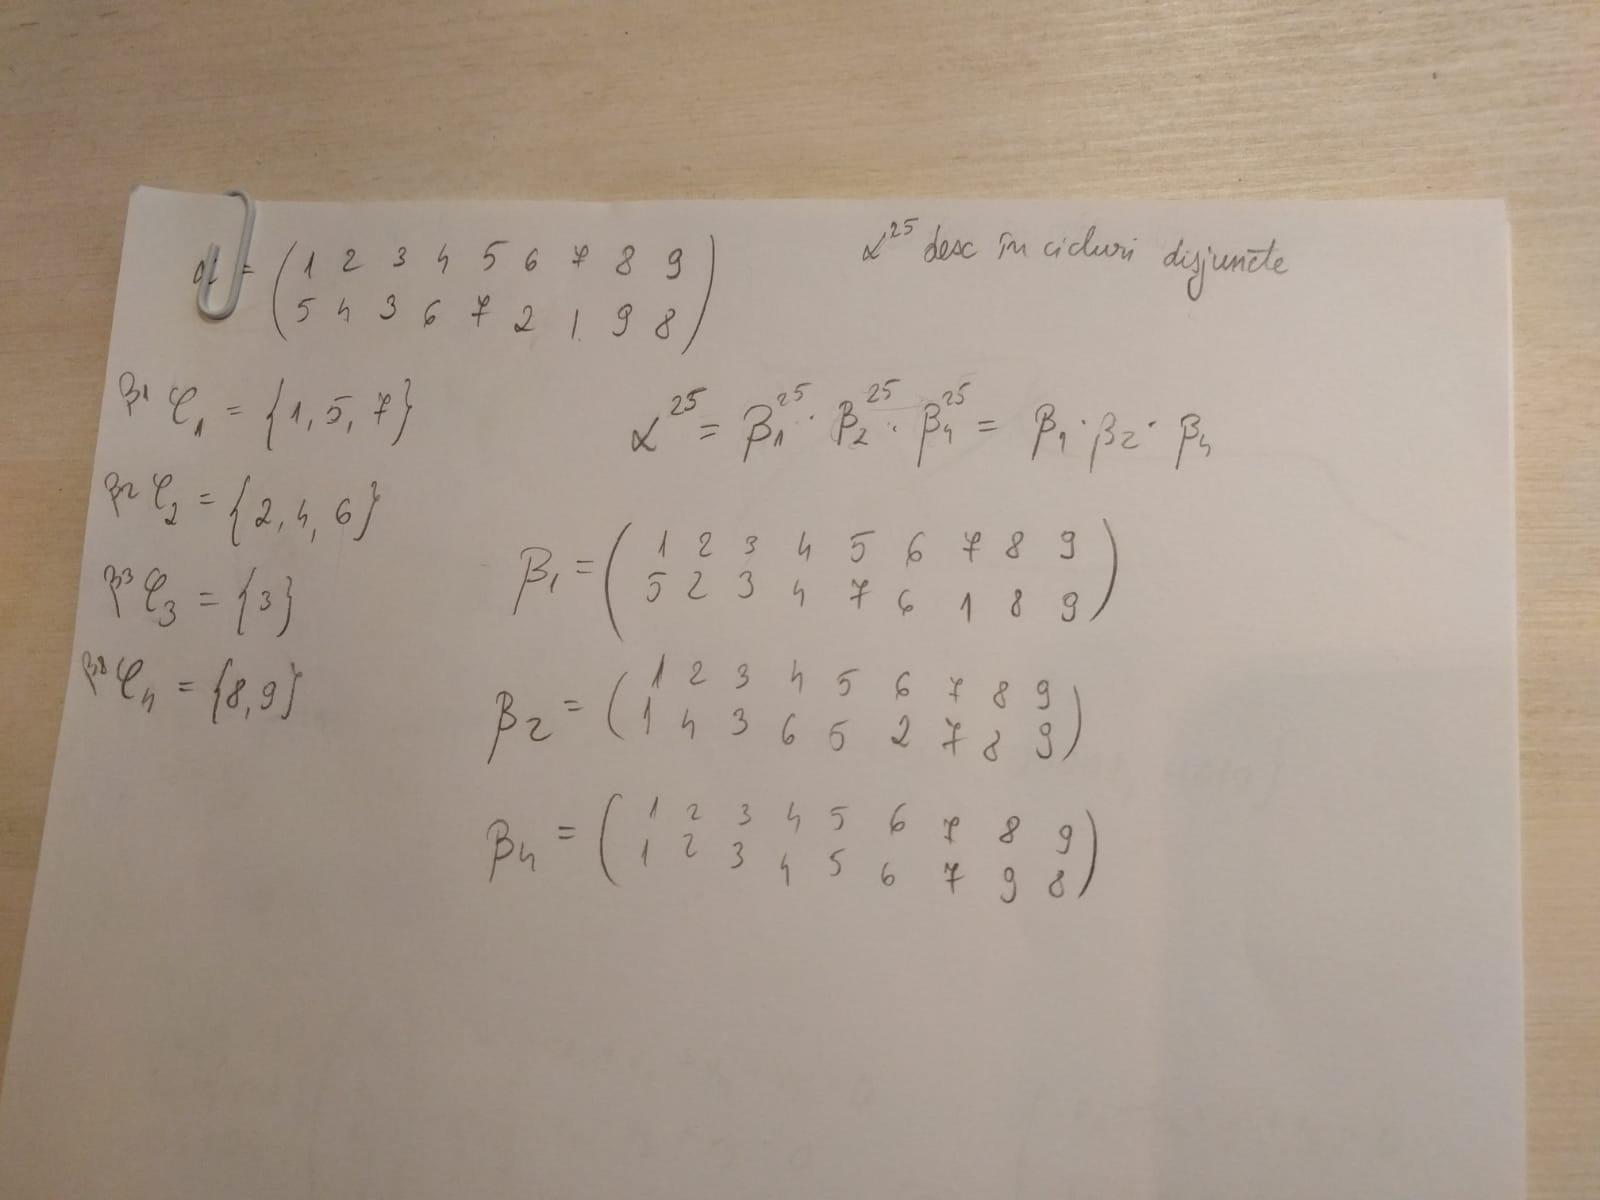 α = (1 2 3 4 5 6 7 8 9
5 4 3 6 7 2 1 9 8)
α^25 desc în cicluri disjuncte
β1 φ1 = {1, 5, 7}
β2 φ2 = {2, 4, 6}
β3 φ3 = {3}
φ4 = {8, 9}
α^25 = β1^25 · β2^25 · β4^25 = β1 · β2 · β4
β1 = (1 2 3 4 5 6 7 8 9
5 2 3 4 7 6 1 8 9)
β2 = (1 2 3 4 5 6 7 8 9
1 4 3 6 5 2 7 8 9)
β4 = (1 2 3 4 5 6 7 8 9
1 2 3 4 5 6 7 9 8)